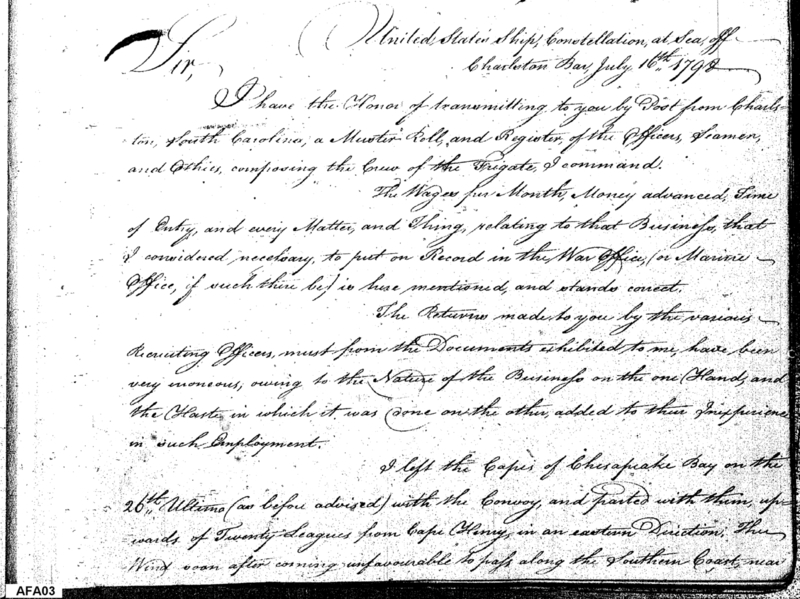 United States Ship, Constellation, at Sea, off
Sir,
Charleston Bar, July 16th 1798
I have the Honor of transmitting to you by Post from Charles-
ton, South Carolina, a Muster Roll, and Register, of the Officers, Seamen,
and Others, composing the Crew of the Frigate, I command.
The Wages per Month, Money advanced, Time
of Entry, and every Matter, and Thing, relating to that Business, that
I considered necessary, to put on Record in the War Office, (or Marine
Office, if such there be) is here mentioned, and stands correct.
The Returns made to you by the various
Recruiting Officers, must from the Documents exhibited to me, have been
very erroneous, owing to the Nature of the Business on the one Hand, and
the Haste in which it was done on the other, added to their Inexperience
in such Employment.
I left the Capes of Chesapeake Bay on the
26th Ultimo (as before advised) with the Convoy, and parted with them, up-
wards of Twenty Leagues from Cape Henry, in an eastern Direction. The
Wind soon after coming unfavourable to pass along the Southern Coast, near
AFA03